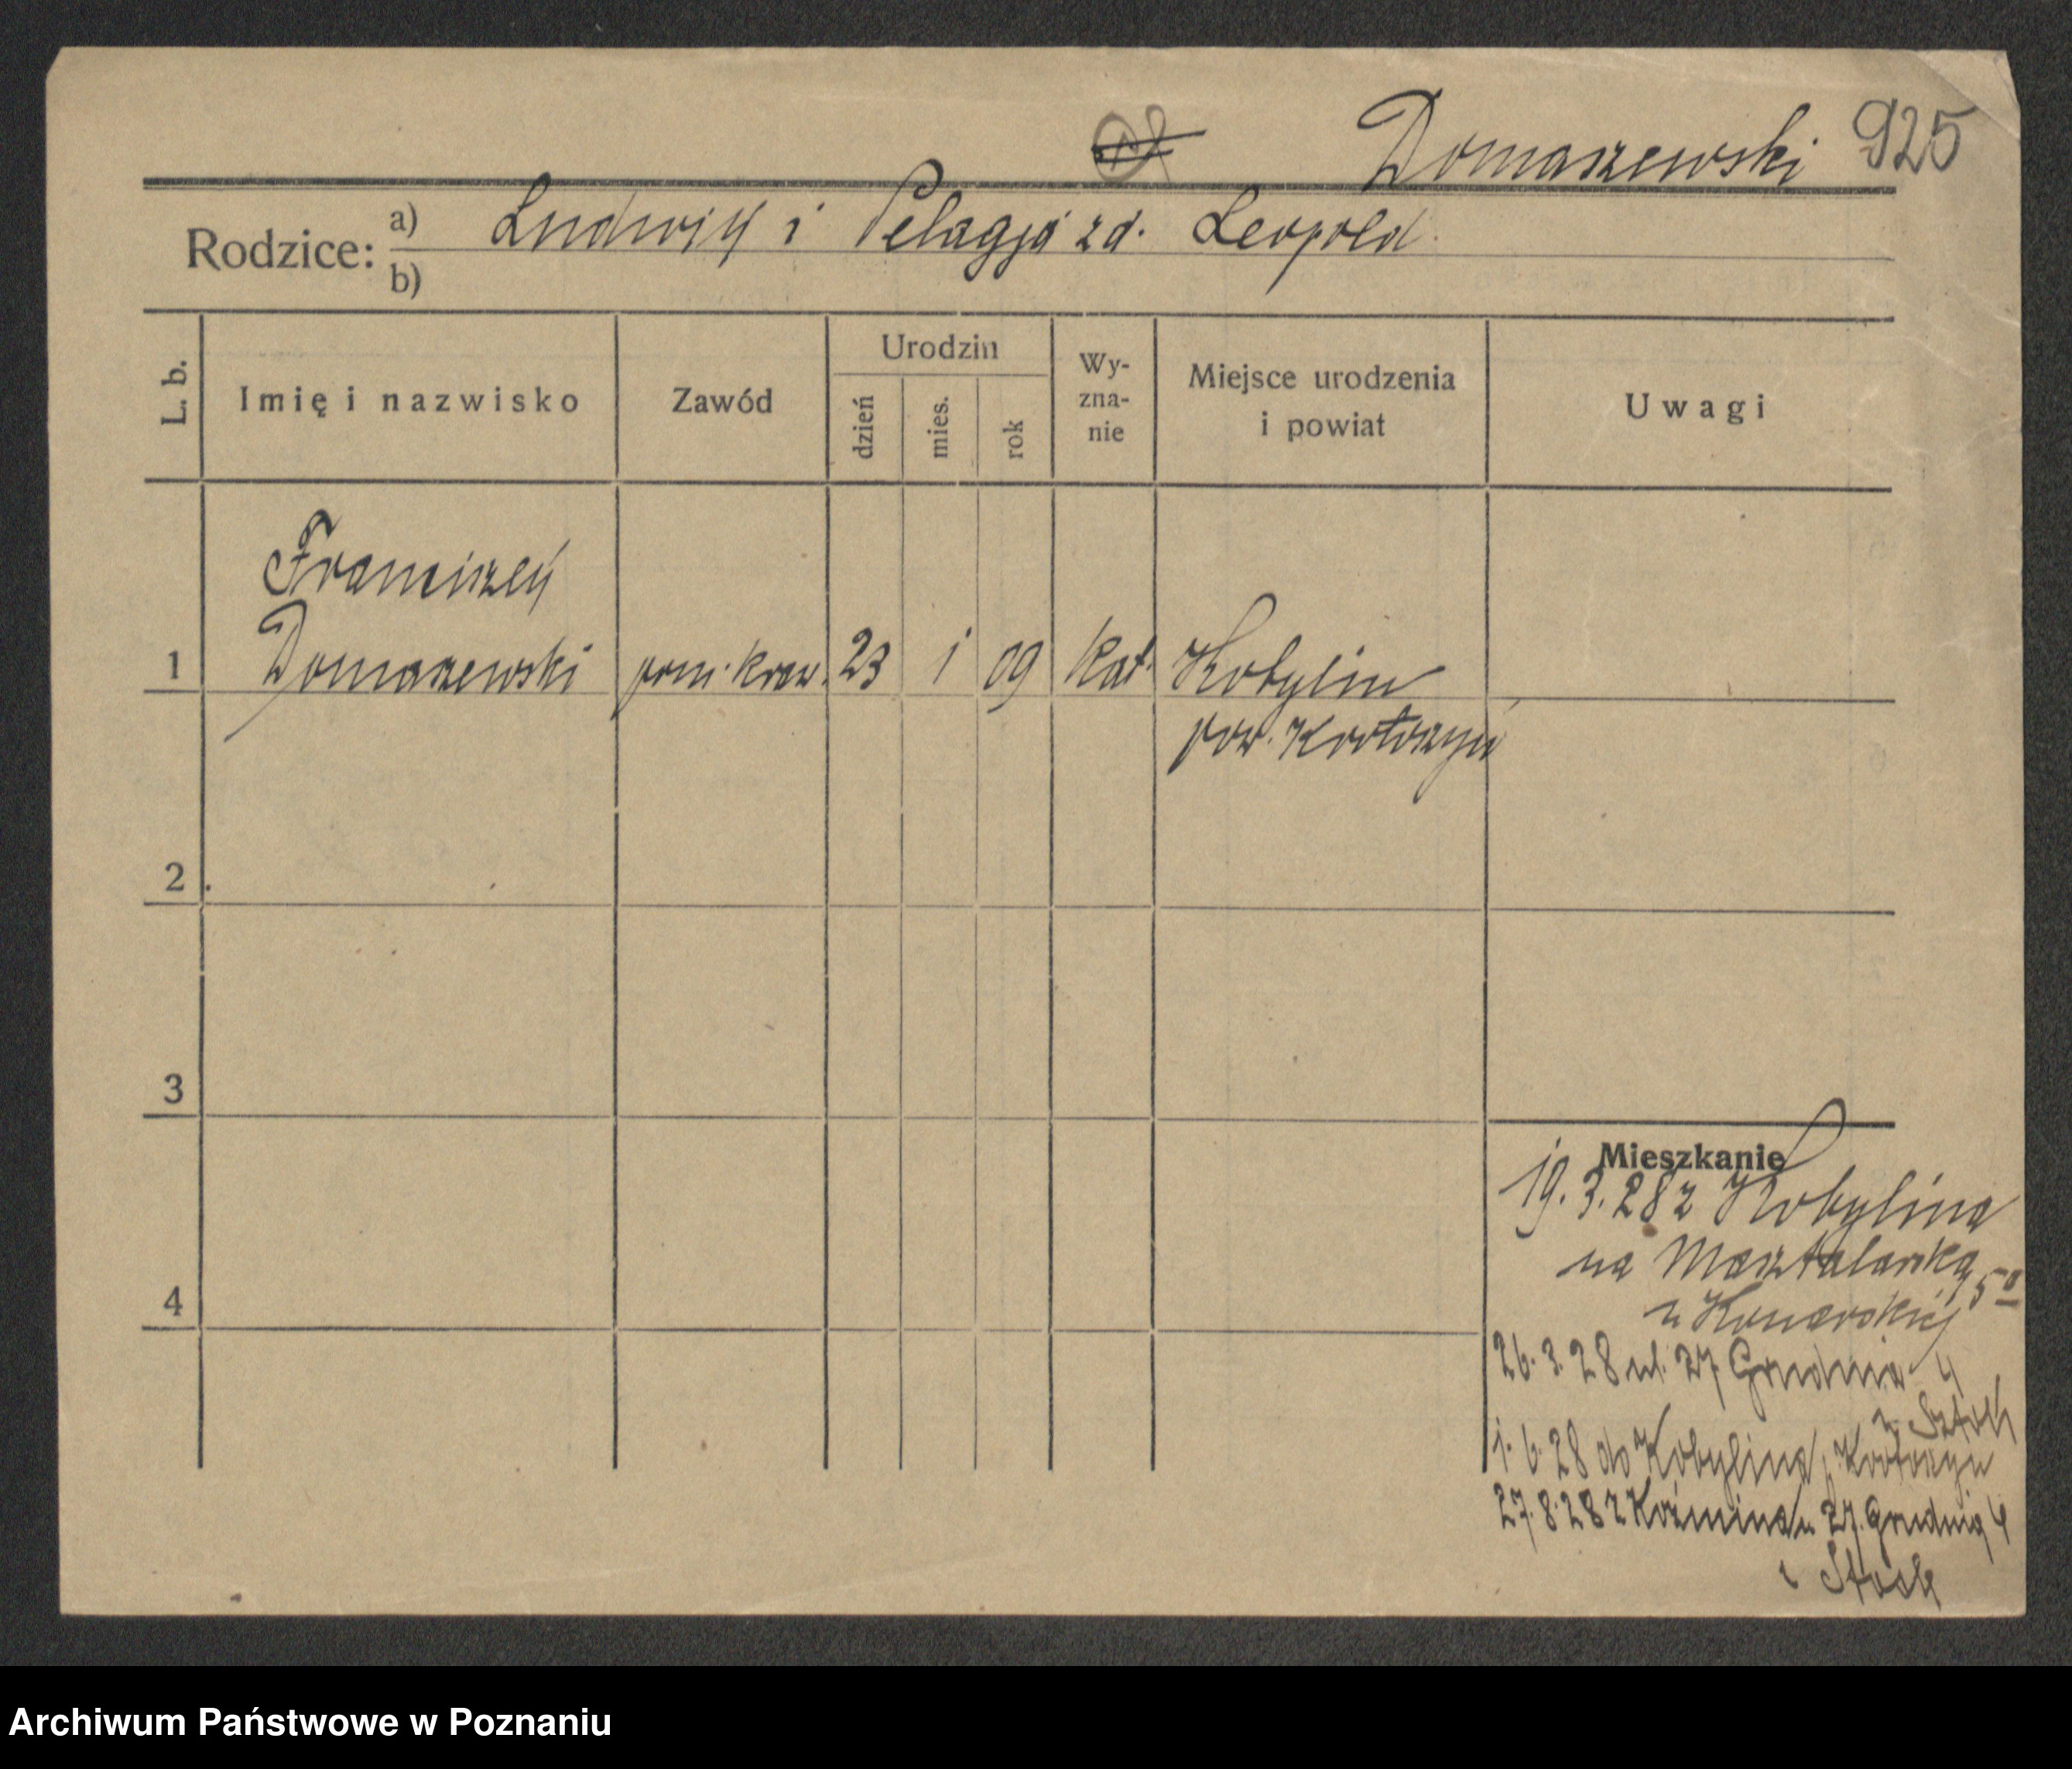 Domaszewski 925
Rodzice: a) Ludwik i Pelagja zd. Leopold
b)
L. b. Imię i nazwisko Zawód Urodzin dzień mies. rok Wy-zna-nie Miejsce urodzenia i powiat Uwagi
Franciszek
1 Domaszewski pom. kraw. 23 1 09 kat. Kobylin
pow. Krotoszyn
2
3
Mieszkanie
19.3.28 z Kobylina
na Masztalarską 5
4
u Konarskiej
26.3.28 ul. 27 Grudnia 4
u Sztok
1.6.28 do Kobylina, Krotoszyn
27.8.28 z Koźmina u. 27. Grudnia 4
Archiwum Państwowe w Poznaniu